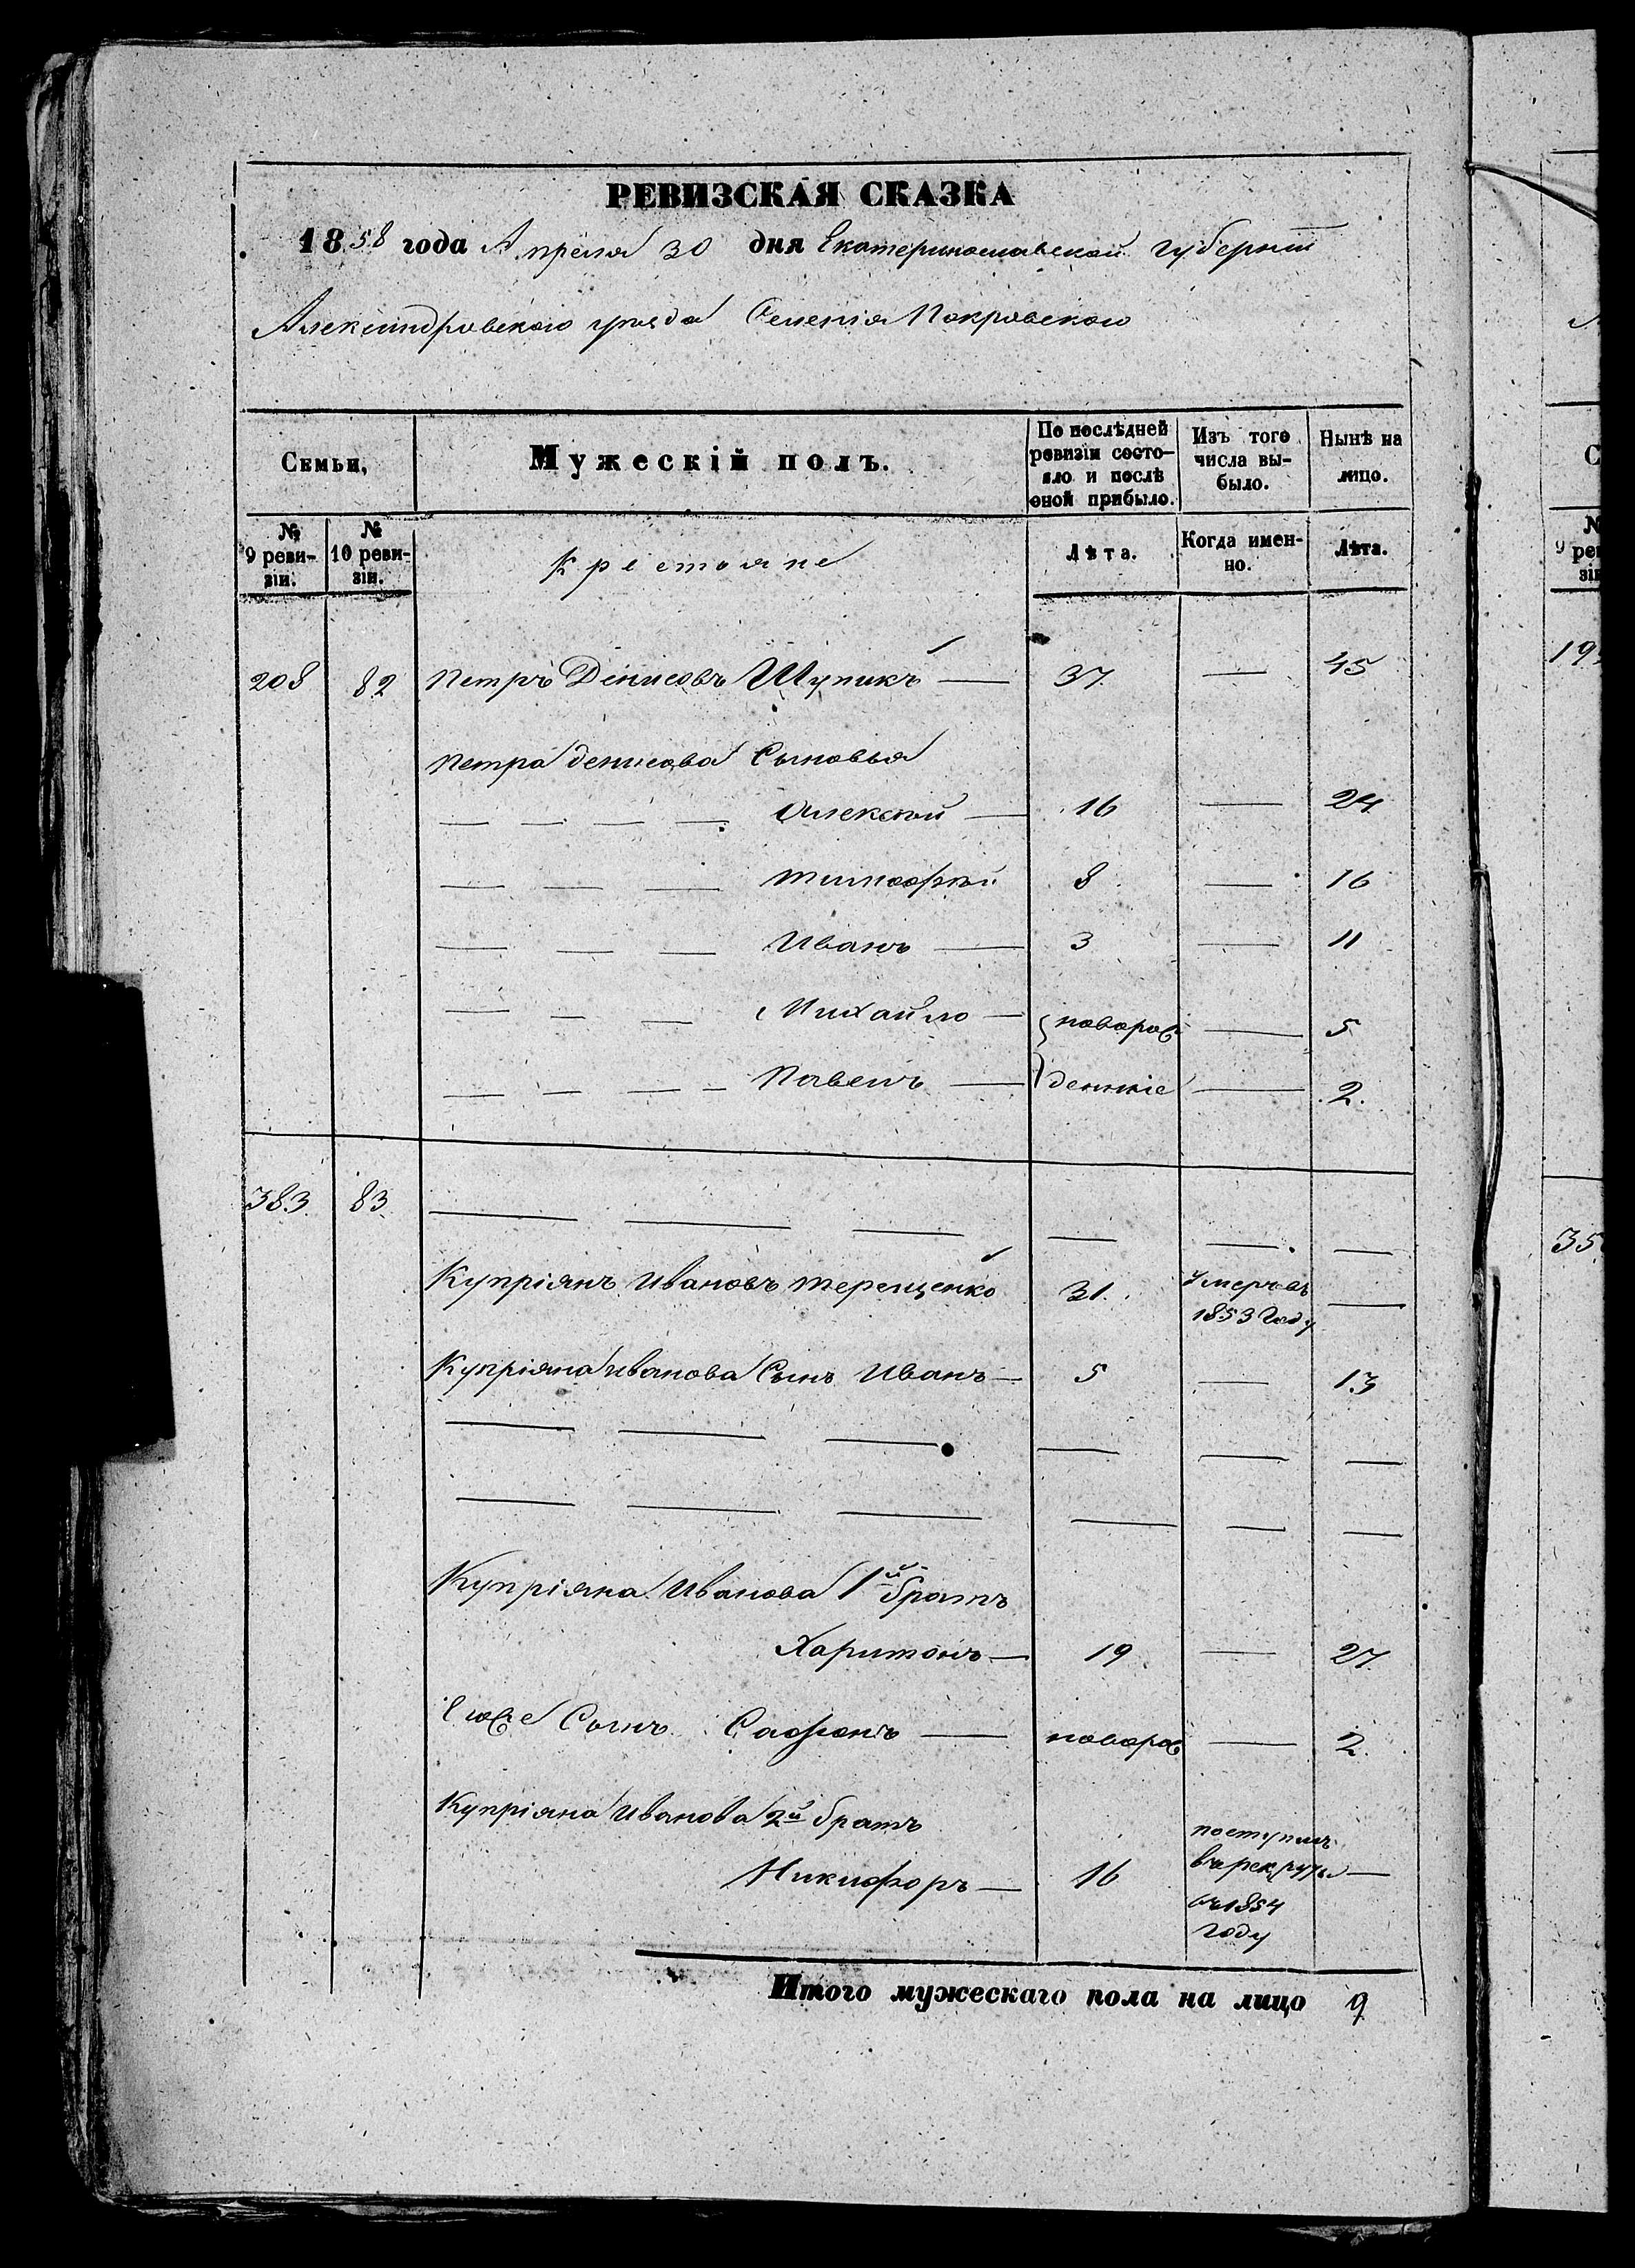 РЕВИЗСКАЯ СКАЗКА
1858 года Апреля 30 дня Екатеринославской губерніи
Александровскаго уезда Селенія Покровскаго
Семьи,
Мужескій полъ.
По послѣдней ревизіи состо-
яло и послѣ оной прибыло.
Изъ того числа вы-
было.
Нынѣ на лицо.
№ 9 реви-
зіи.
№ 10 реви-
зіи.
Крестояне
Лѣта.
Когда имен-
но.
Лѣта.
208 82 Петръ Денисовъ Шупикъ — 37. — 45
Петра денисова Сыновья
— — — — Алексѣй — 16 — 24
— — — тимофѣй 8 — 16
— — — Иванъ — 3 — 11
— — — Михайло — новорож — 5
— — — — Павелъ — денніе — 2.
383. 83. — — — — — —
Купріянъ Ивановъ терещенко 31. умеръ въ 1853 году —
Купріяна иванова Сынъ Иванъ — 5 — 13
— — — — — —
— — — — — —
Купріяна Иванова 1й братъ
Харитонъ — 19 — 27.
Его Сынъ Сафонъ — новорож — 2.
Купріяна Иванова 2й братъ
Никифоръ — 16 поступилъ
въ рекруты —
въ 1854
году
Итого мужескаго пола на лицо 9
С
№
9 ре
зі
19
35